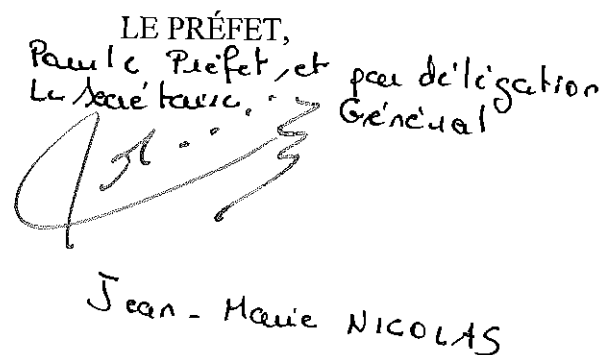 LE PRÉFET,
Pour le Préfet, et par délégation
Le Secrétaire Général
Jean-Marie NICOLAS